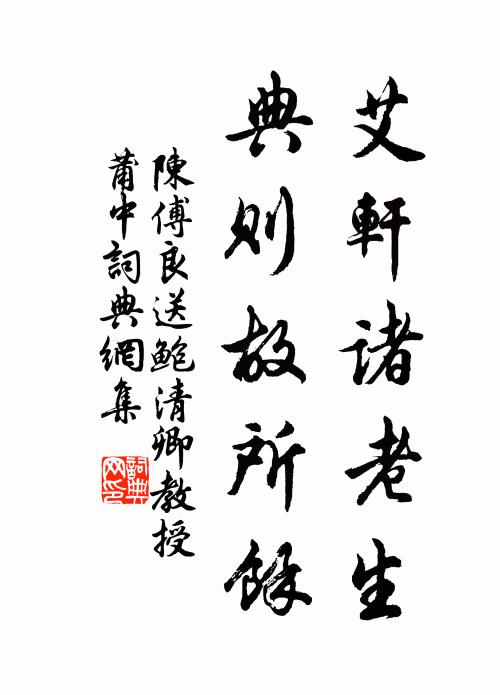 艾軒諸老生
典則故所餘
陳傅良送鮑清卿教授
莆中詞典網集
詞典网印